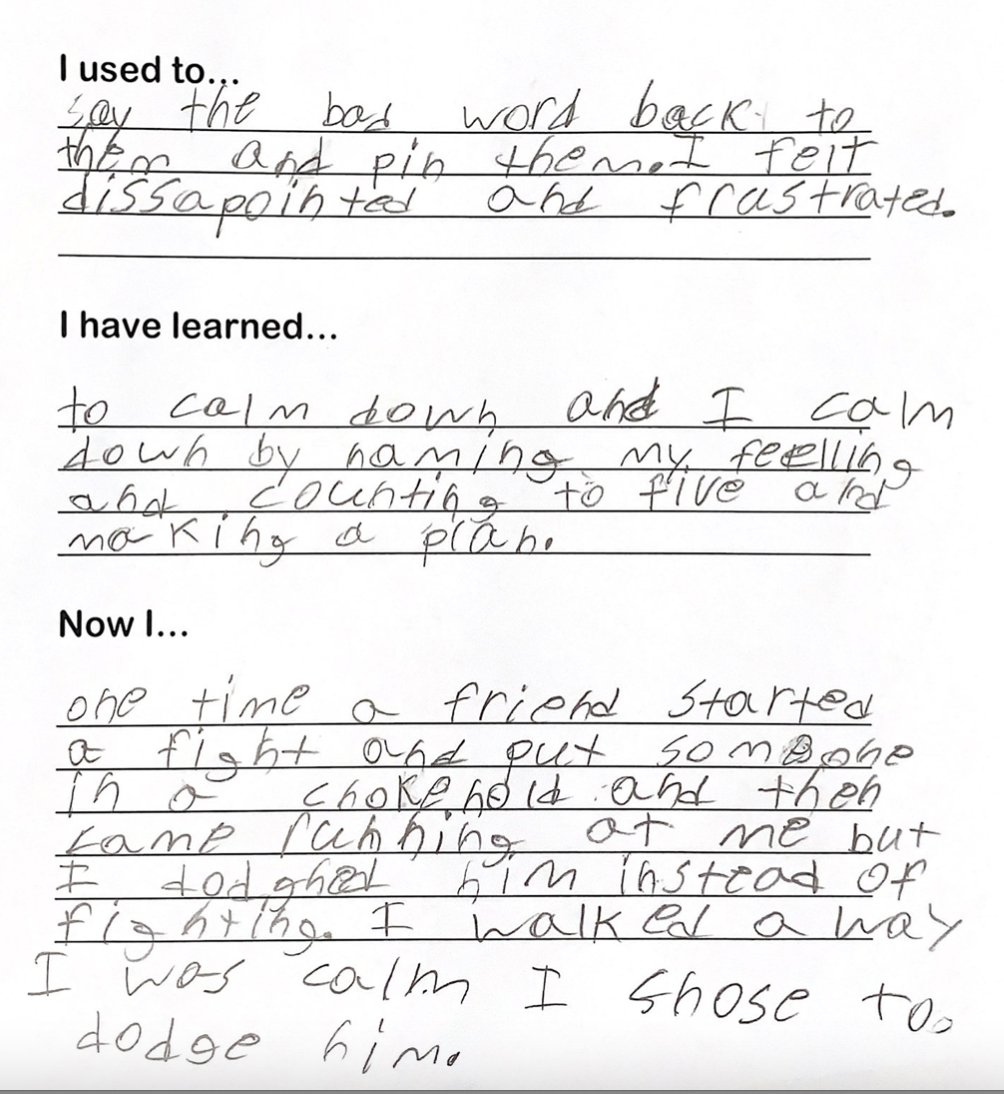 I used to...
say the bad word back to
them and pin them. I felt
dissapointed and frustrated.
I have learned...
to calm down and I calm
down by naming my feelling
and counting to five and
making a plan.
Now I...
one time a friend started
a fight and put someone
in a chokehold and then
came running at me but
I dodghed him instead of
fighting. I walked a way
I was calm I shose to.
dodge him.